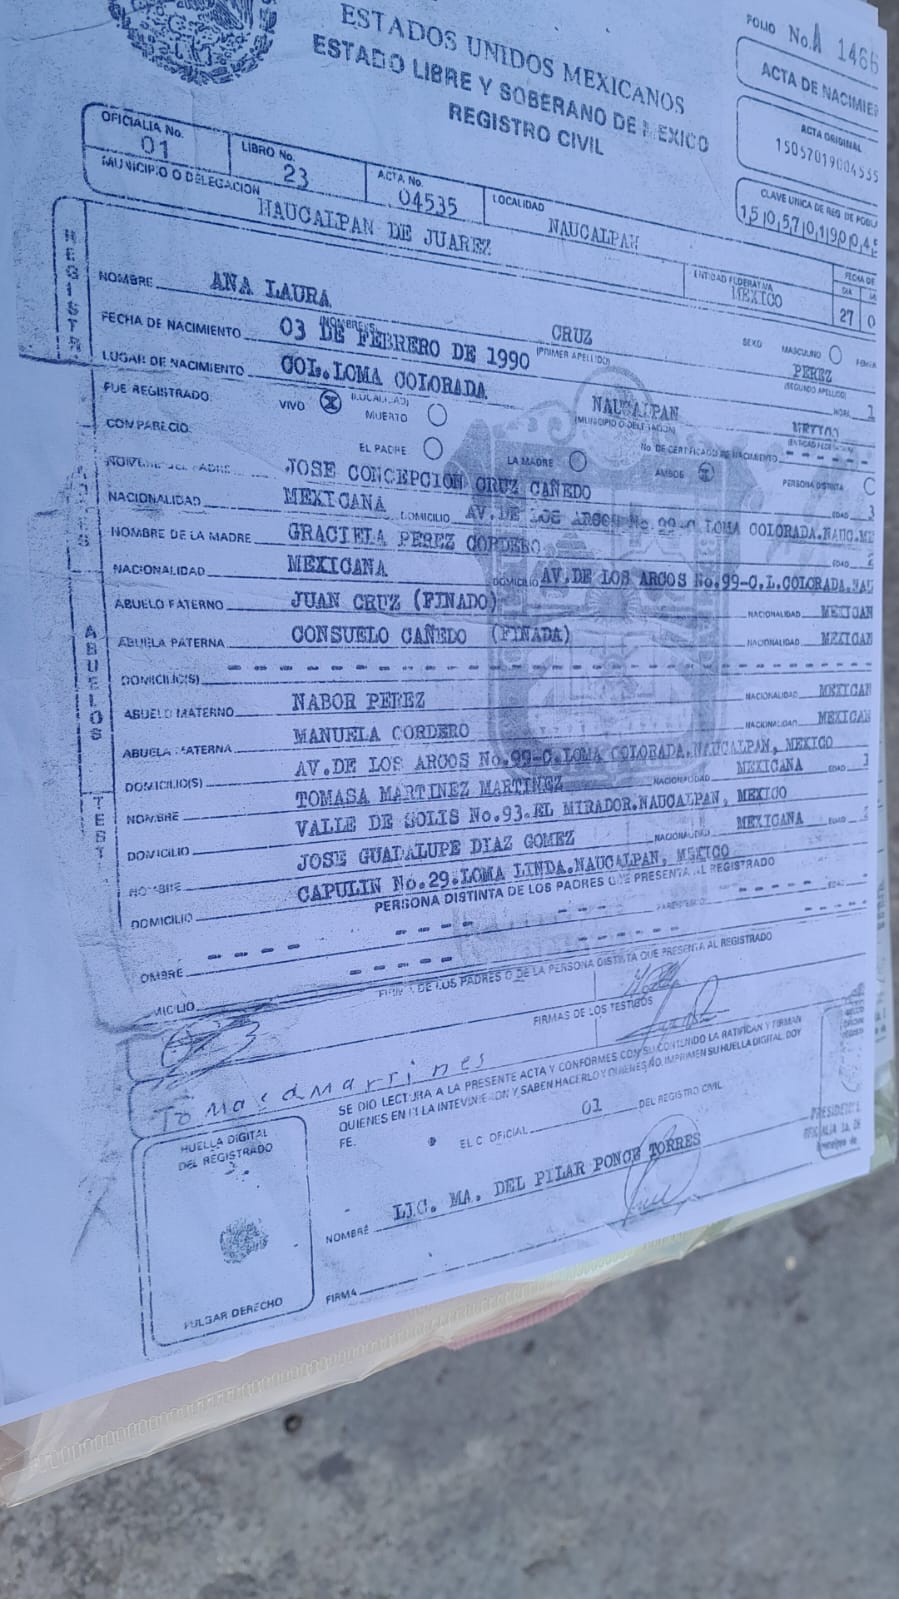 ESTADOS UNIDOS MEXICANOS
ESTADO LIBRE Y SOBERANO DE MEXICO
REGISTRO CIVIL
FOLIO No. A 1466
ACTA DE NACIMIE
ACTA ORIGINAL
15057019004535
CLAVE UNICA DE REG. DE POBL
OFICIALIA No. 01
LIBRO No. 23
ACTA No. 04535
LOCALIDAD NAUCALPAN
MUNICIPIO O DELEGACION NAUCALPAN DE JUAREZ
ENTIDAD FEDERATIVA MEXICO
FECHA DE
DIA 27 0
NOMBRE ANA LAURA CRUZ PEREZ
(NOMBRE(S) (PRIMER APELLIDO) (SEGUNDO APELLIDO)
SEXO MASCULINO FEMEN
FECHA DE NACIMIENTO 03 DE FEBRERO DE 1990 HORA 1
LUGAR DE NACIMIENTO COL.LOMA COLORADA NAUCALPAN MEXICO
(LOCALIDAD) (MUNICIPIO O DELEGACION)
FUE REGISTRADO: VIVO X MUERTO No. DE CERTIFICADO DE NACIMIENTO - - - - -
COMPARECIO: EL PADRE LA MADRE AMBOS X PERSONA DISTINTA
NOMBRE DEL PADRE JOSE CONCEPCION CRUZ CAÑEDO EDAD 3
NACIONALIDAD MEXICANA DOMICILIO AV.DE LOS ARCOS No.99-C LOMA COLORADA.NAUC.ME
NOMBRE DE LA MADRE GRACIELA PEREZ CORDERO EDAD
NACIONALIDAD MEXICANA DOMICILIO AV.DE LOS ARCOS No.99-C.L.COLORADA.NAU
ABUELO PATERNO JUAN CRUZ (FINADO) NACIONALIDAD MEXICAN
ABUELA PATERNA CONSUELO CAÑEDO (FINADA) NACIONALIDAD MEXICAN
DOMICILIO(S) - - - - - - - - - -
ABUELO MATERNO NABOR PEREZ NACIONALIDAD MEXICAN
ABUELA MATERNA MANUELA CORDERO NACIONALIDAD MEXICAN
DOMICILIO(S) AV.DE LOS ARCOS No.99-C.LOMA COLORADA.NAUCALPAN, MEXICO
NOMBRE TOMASA MARTINEZ MARTINEZ NACIONALIDAD MEXICANA EDAD
DOMICILIO VALLE DE SOLIS No.93.EL MIRADOR.NAUCALPAN, MEXICO
NOMBRE JOSE GUADALUPE DIAZ GOMEZ NACIONALIDAD MEXICANA EDAD
DOMICILIO CAPULIN No.29.LOMA LINDA.NAUCALPAN, MEXICO
PERSONA DISTINTA DE LOS PADRES QUE PRESENTA AL REGISTRADO
OMBRE - - - - PARENTESCO - - - - EDAD
MICILIO - - - - -
FIRMA DE LOS PADRES O DE LA PERSONA DISTINTA QUE PRESENTA AL REGISTRADO
FIRMAS DE LOS TESTIGOS
Tomasa Martines
SE DIO LECTURA A LA PRESENTE ACTA Y CONFORMES CON SU CONTENIDO LA RATIFICAN Y FIRMAN
QUIENES EN ELLA INTEVINIERON Y SABEN HACERLO Y QUIENES NO, IMPRIMEN SU HUELLA DIGITAL. DOY
FE.
EL C. OFICIAL 01 DEL REGISTRO CIVIL
HUELLA DIGITAL
DEL REGISTRADO
PULGAR DERECHO
NOMBRE LIC. MA. DEL PILAR PONCE TORRES
FIRMA
REGISTR
ABUELOS
TEST